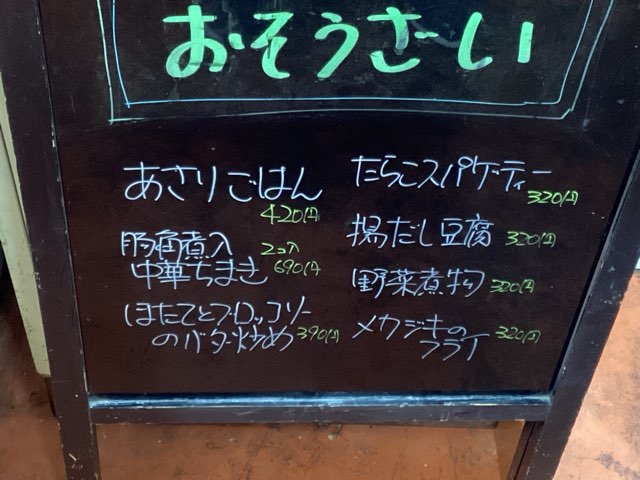 おそうざい
あさりごはん
420円
豚角煮入 2コ入
中華ちまき 690円
ほたてとブロッコリー
のバター炒め 390円
たらこスパゲティー
320円
揚だし豆腐 320円
野菜煮物 300円
メカジキの
フライ 320円